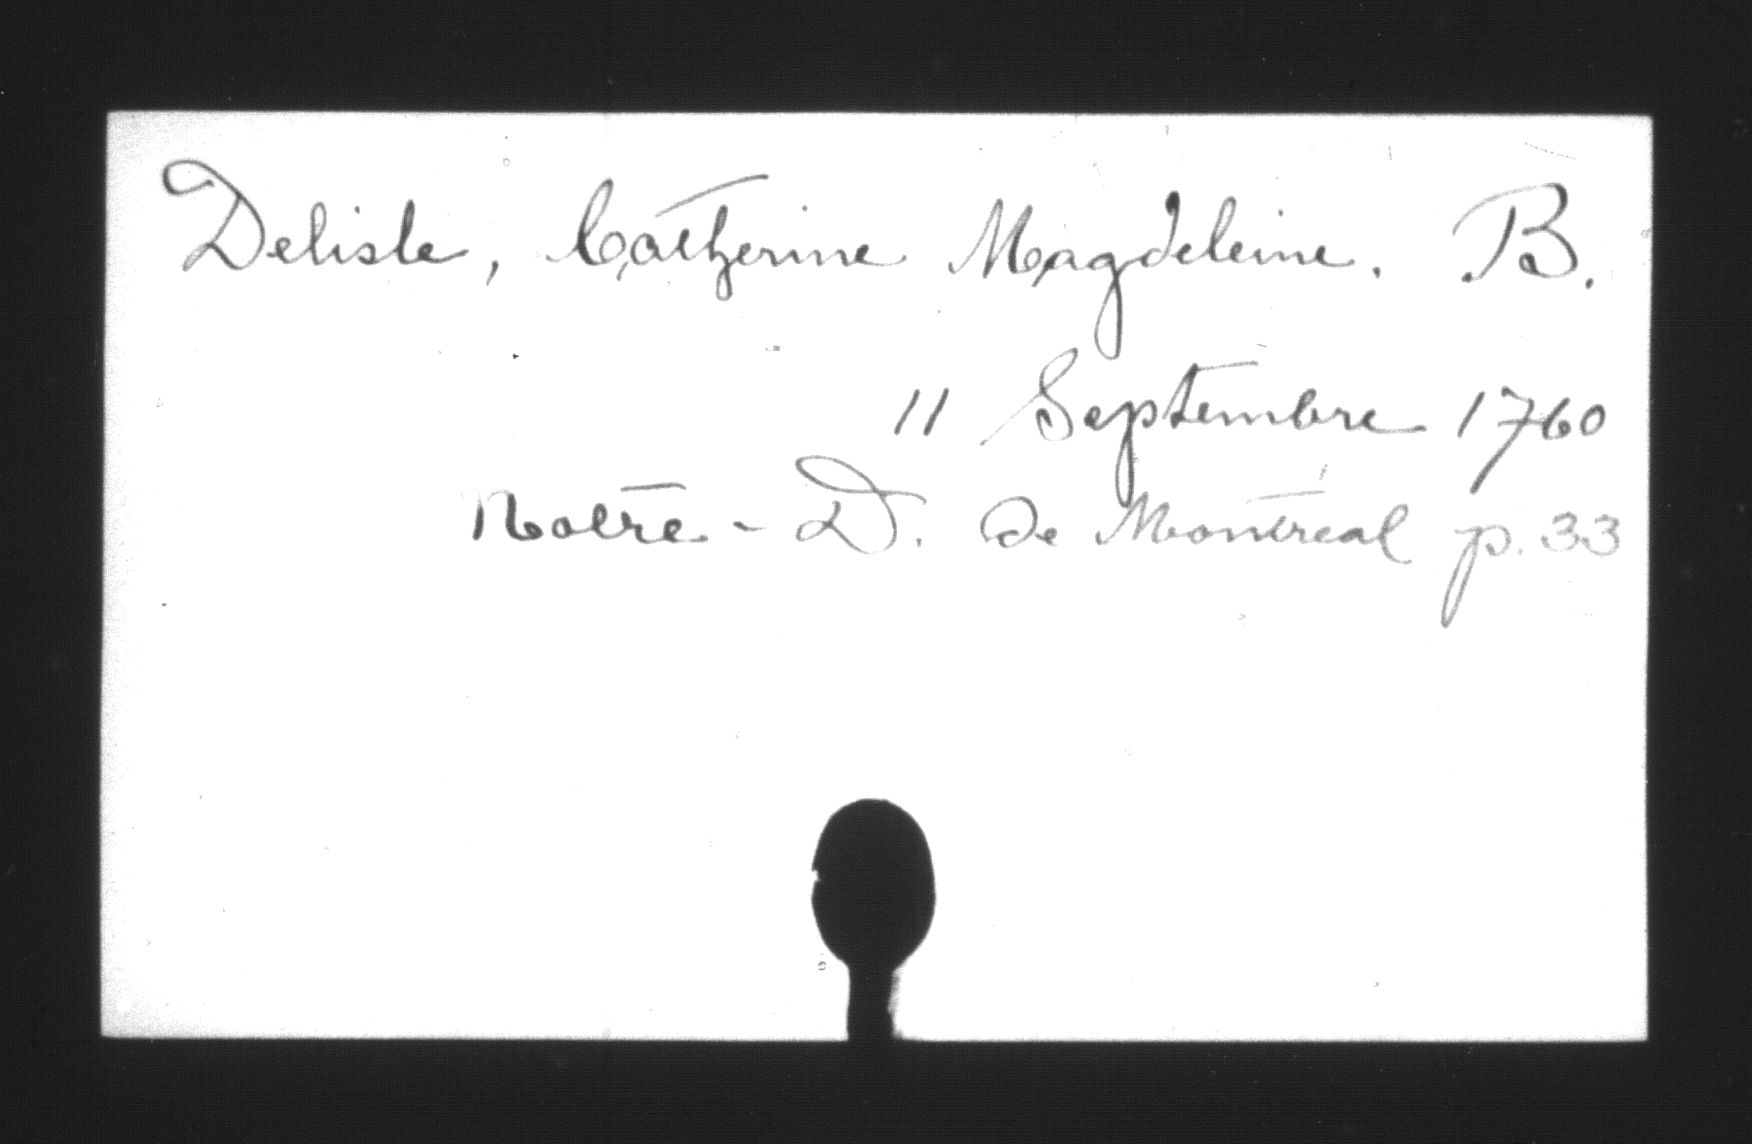 Delisle, Catherine Magdeleine. B.
11 Septembre 1760
Notre-D. de Montréal p. 33